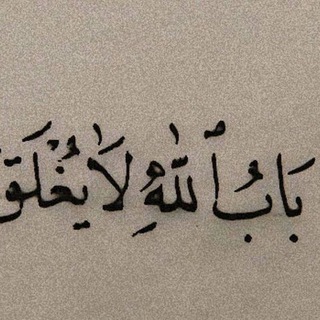 بَابُ ٱللّٰهِ لَا يُغْلَق